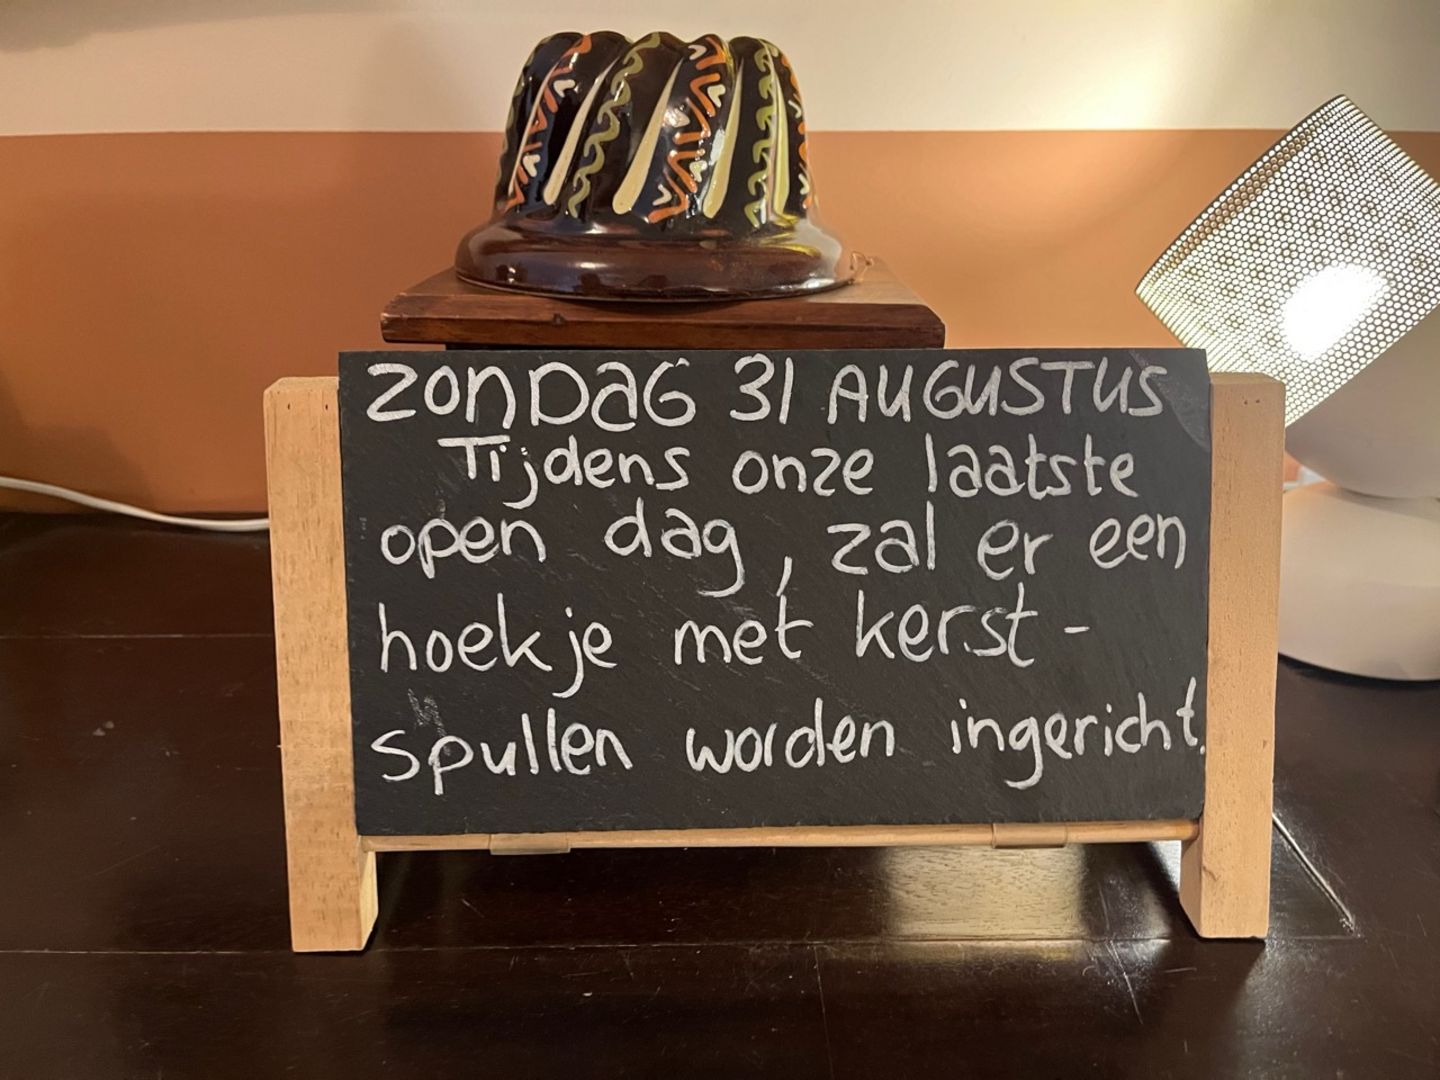 ZONDAG 31 AUGUSTUS
Tijdens onze laatste
open dag, zal er een
hoekje met kerst-
spullen worden ingericht.